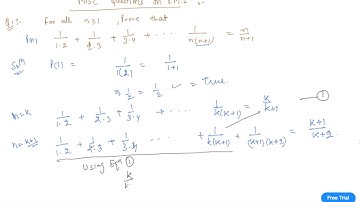 Misc Questions on P.M.I
Q1:- For all n≥1, Prove that
P(n) 1/1·2 + 1/2·3 + 1/3·4 + ··· 1/n(n+1) = n/n+1
Sol(n) P(1) = 1/1(2) = 1/1+1
⇒ 1/2 = 1/2 ✓ = True.
n=k 1/1·2 + 1/2·3 + 1/3·4 + ··· 1/k(k+1) = k/k+1 ①
n=k+1 1/1·2 + 1/2·3 + 1/3·4 ··· + 1/k(k+1) + 1/(k+1)(k+2) = k+1/k+2
Using Eqn ①
k
Free Trial